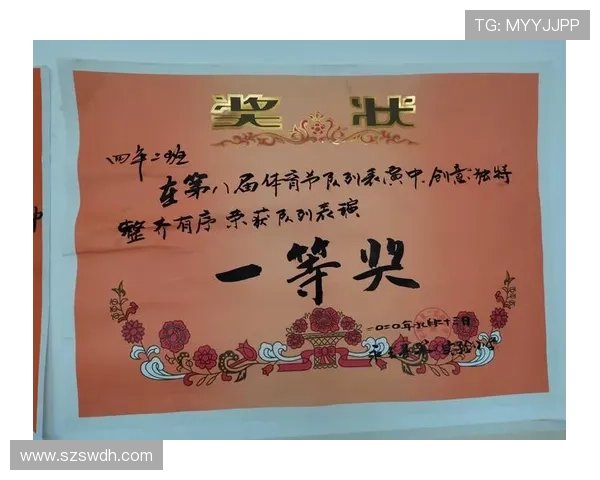 TG: MYYJJPP
奖 状
四年二班
在第八届体育节队列表演中,创意独特
整齐有序 荣获队列表演
一等奖
实验小学
www.szswdh.com